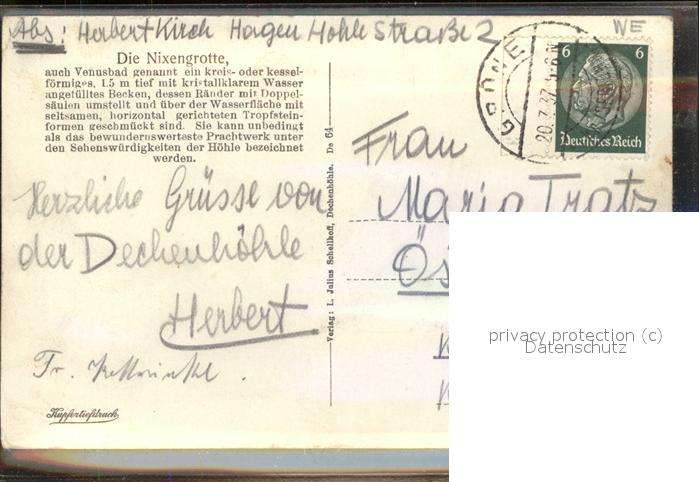 Abs: Herbert Kirch Hagen Hohle Straße 2
WE
Die Nixengrotte,
auch Venusbad genannt ein kreis- oder kessel-
förmiges, 1,5 m tief mit kristallklarem Wasser
angefülltes Becken, dessen Ränder mit Doppel-
säulen umstellt und über der Wasserfläche mit
seltsamen, horizontal gerichteten Tropfstein-
formen geschmückt sind. Sie kann unbedingt
als das bewundernswerteste Prachtwerk unter
den Sehenswürdigkeiten der Höhle bezeichnet
werden.
Herzliche Grüsse von
der Dechenhöhle
Herbert
Fr.
Kupfertiefdruck
Verlag: L. Julius Schellkoff, Dechenhöhle. De 64
GRÜNE
20.7.37
6 6
Deutsches Reich
Frau
Maria Tratz
Ös
privacy protection (c)
Datenschutz